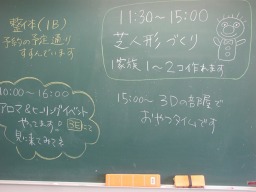 整体(1B)
予約の予定通り
すすんでいます
11:30～15:00
芝人形づくり
1家族 1～2コ作れます
10:00～16:00
アロマ&ヒーリングイベント
やってます♪ にて
見に来てみてネ
15:00～3Dの部屋で
おやつタイムです